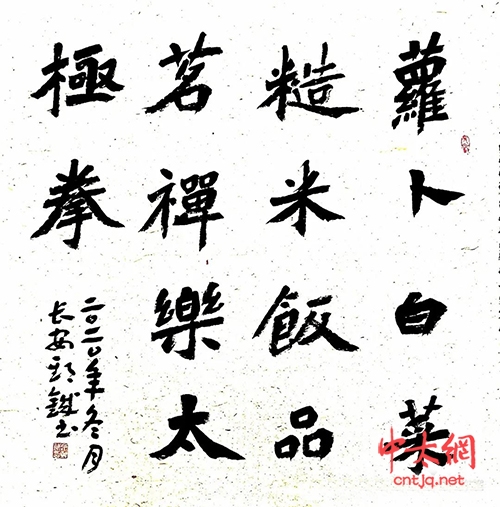 蘿卜白菜
糙米飯品
茗禪樂太
極拳
二〇二〇年冬月
長安
鐵书
中太網
cntjq.net